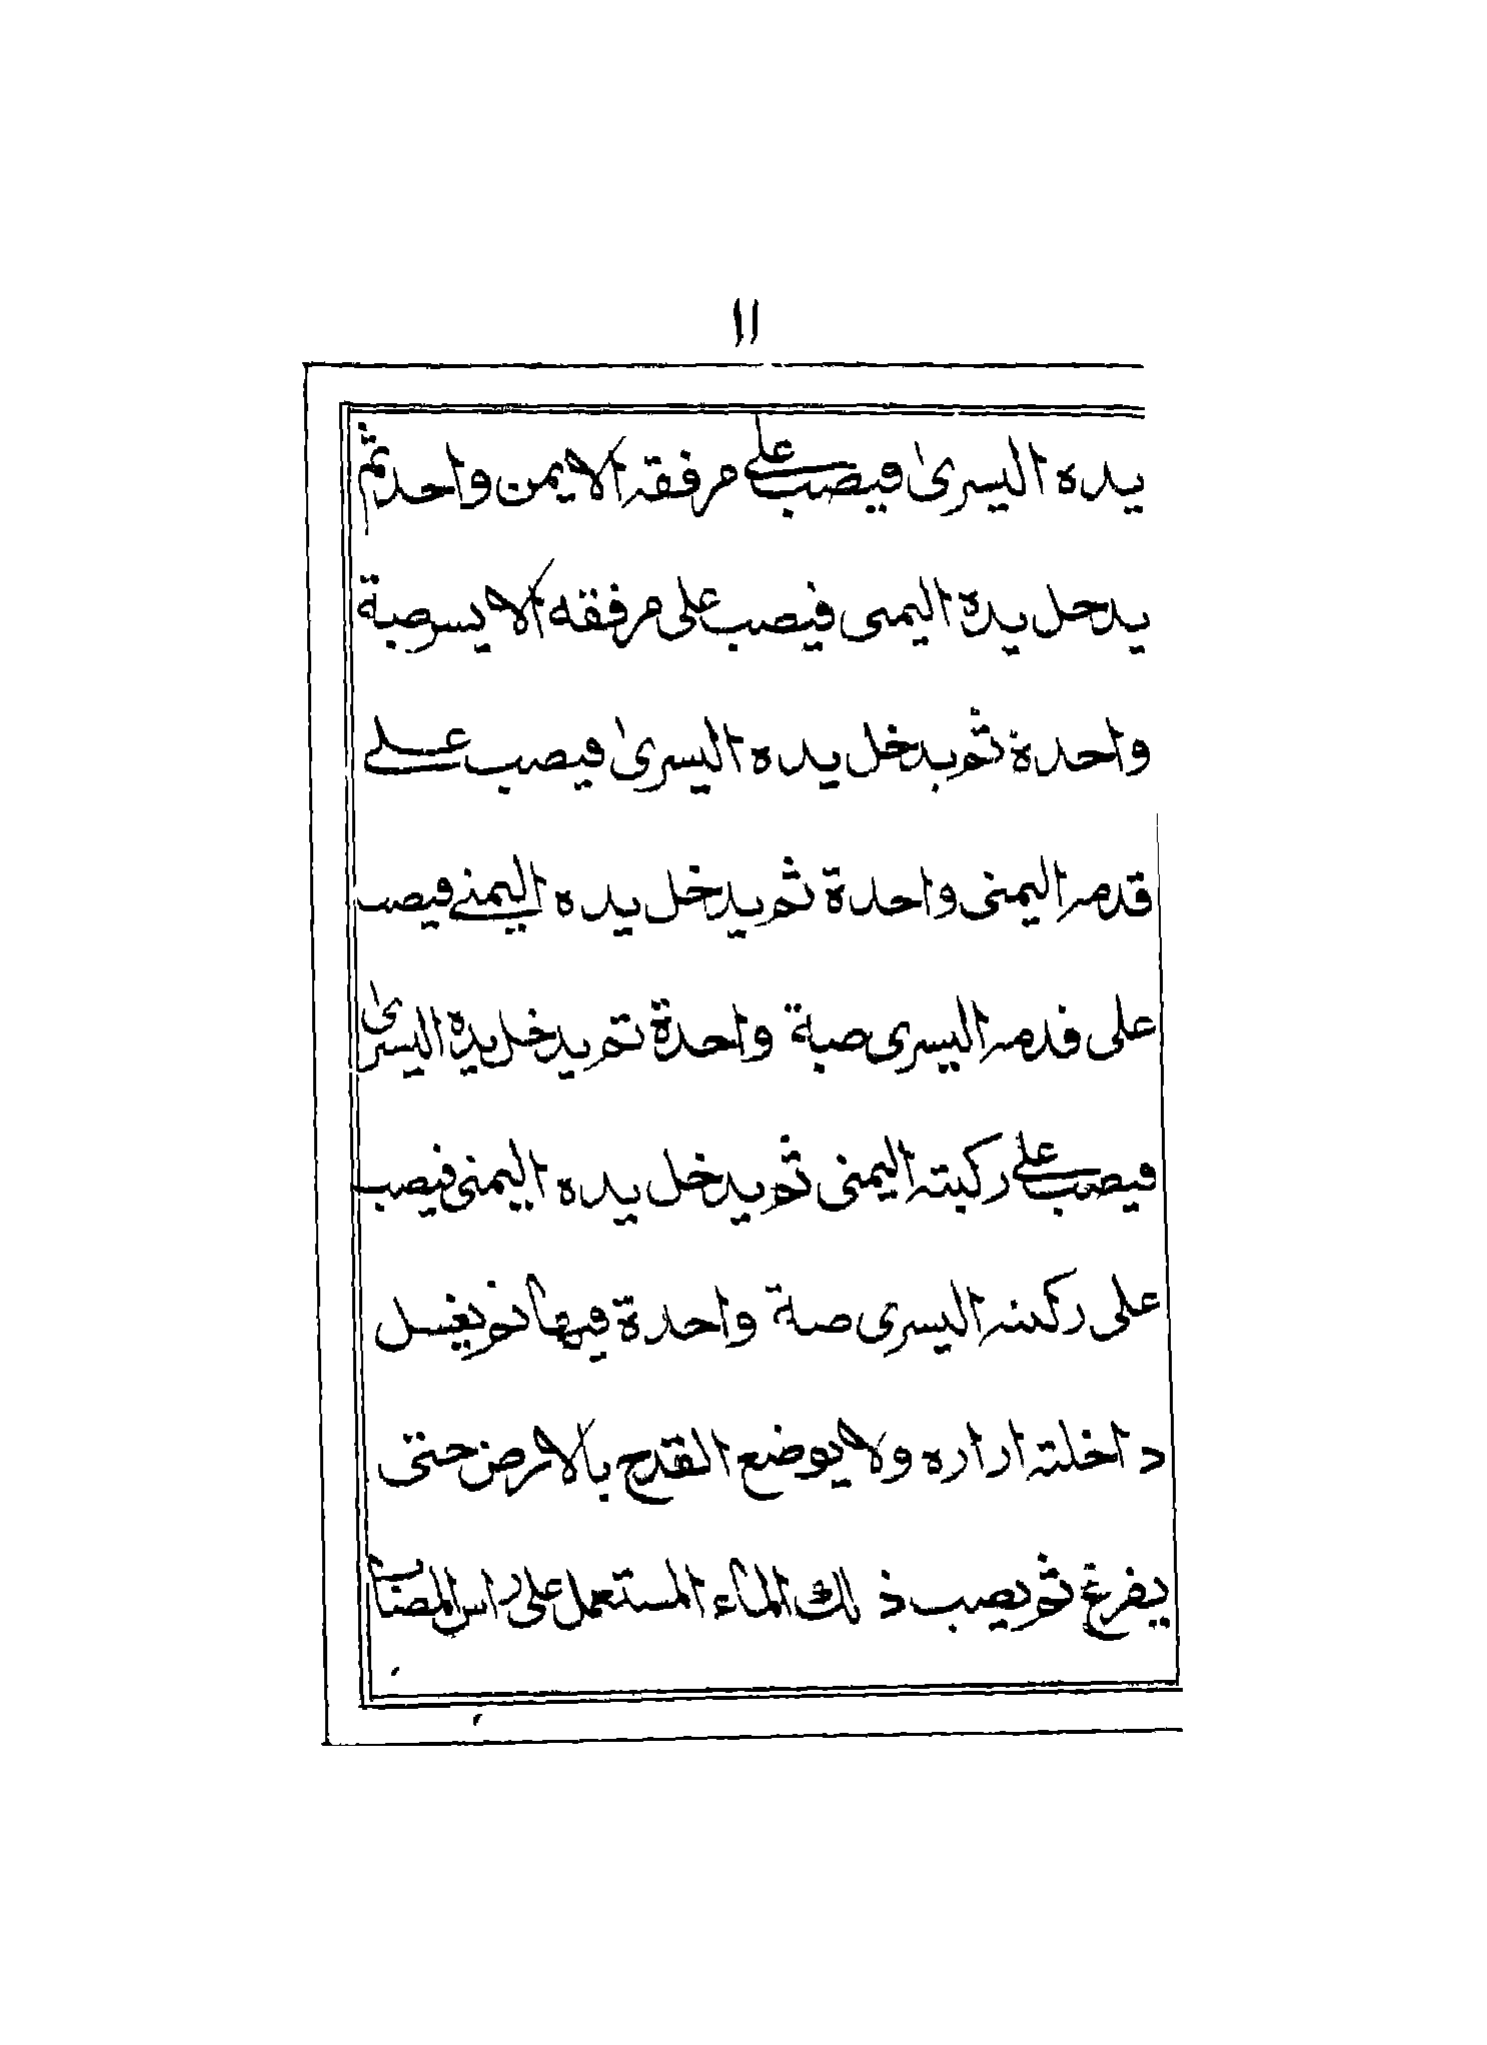 ۱۱
يده اليسرىٰ فيصب على مرفقه الايمن واحد ثم
يدخل يده اليمنى فيصب على مرفقه الايسر صبة
واحدة ثم يدخل يده اليسرىٰ فيصب على
قدمه اليمنى واحدة ثم يدخل يده اليمنى فيصب
على قدمه اليسرى صبة واحدة ثم يدخل يده اليسرىٰ
فيصب على ركبته اليمنى ثم يدخل يده اليمنى فيصب
على ركبته اليسرى صبة واحدة فيها ثم يغسل
داخلته ازاره ولا يوضع القدح بالارض حتى
يفرغ ثم يصب ذلك الماء المستعمل على راس المصاب